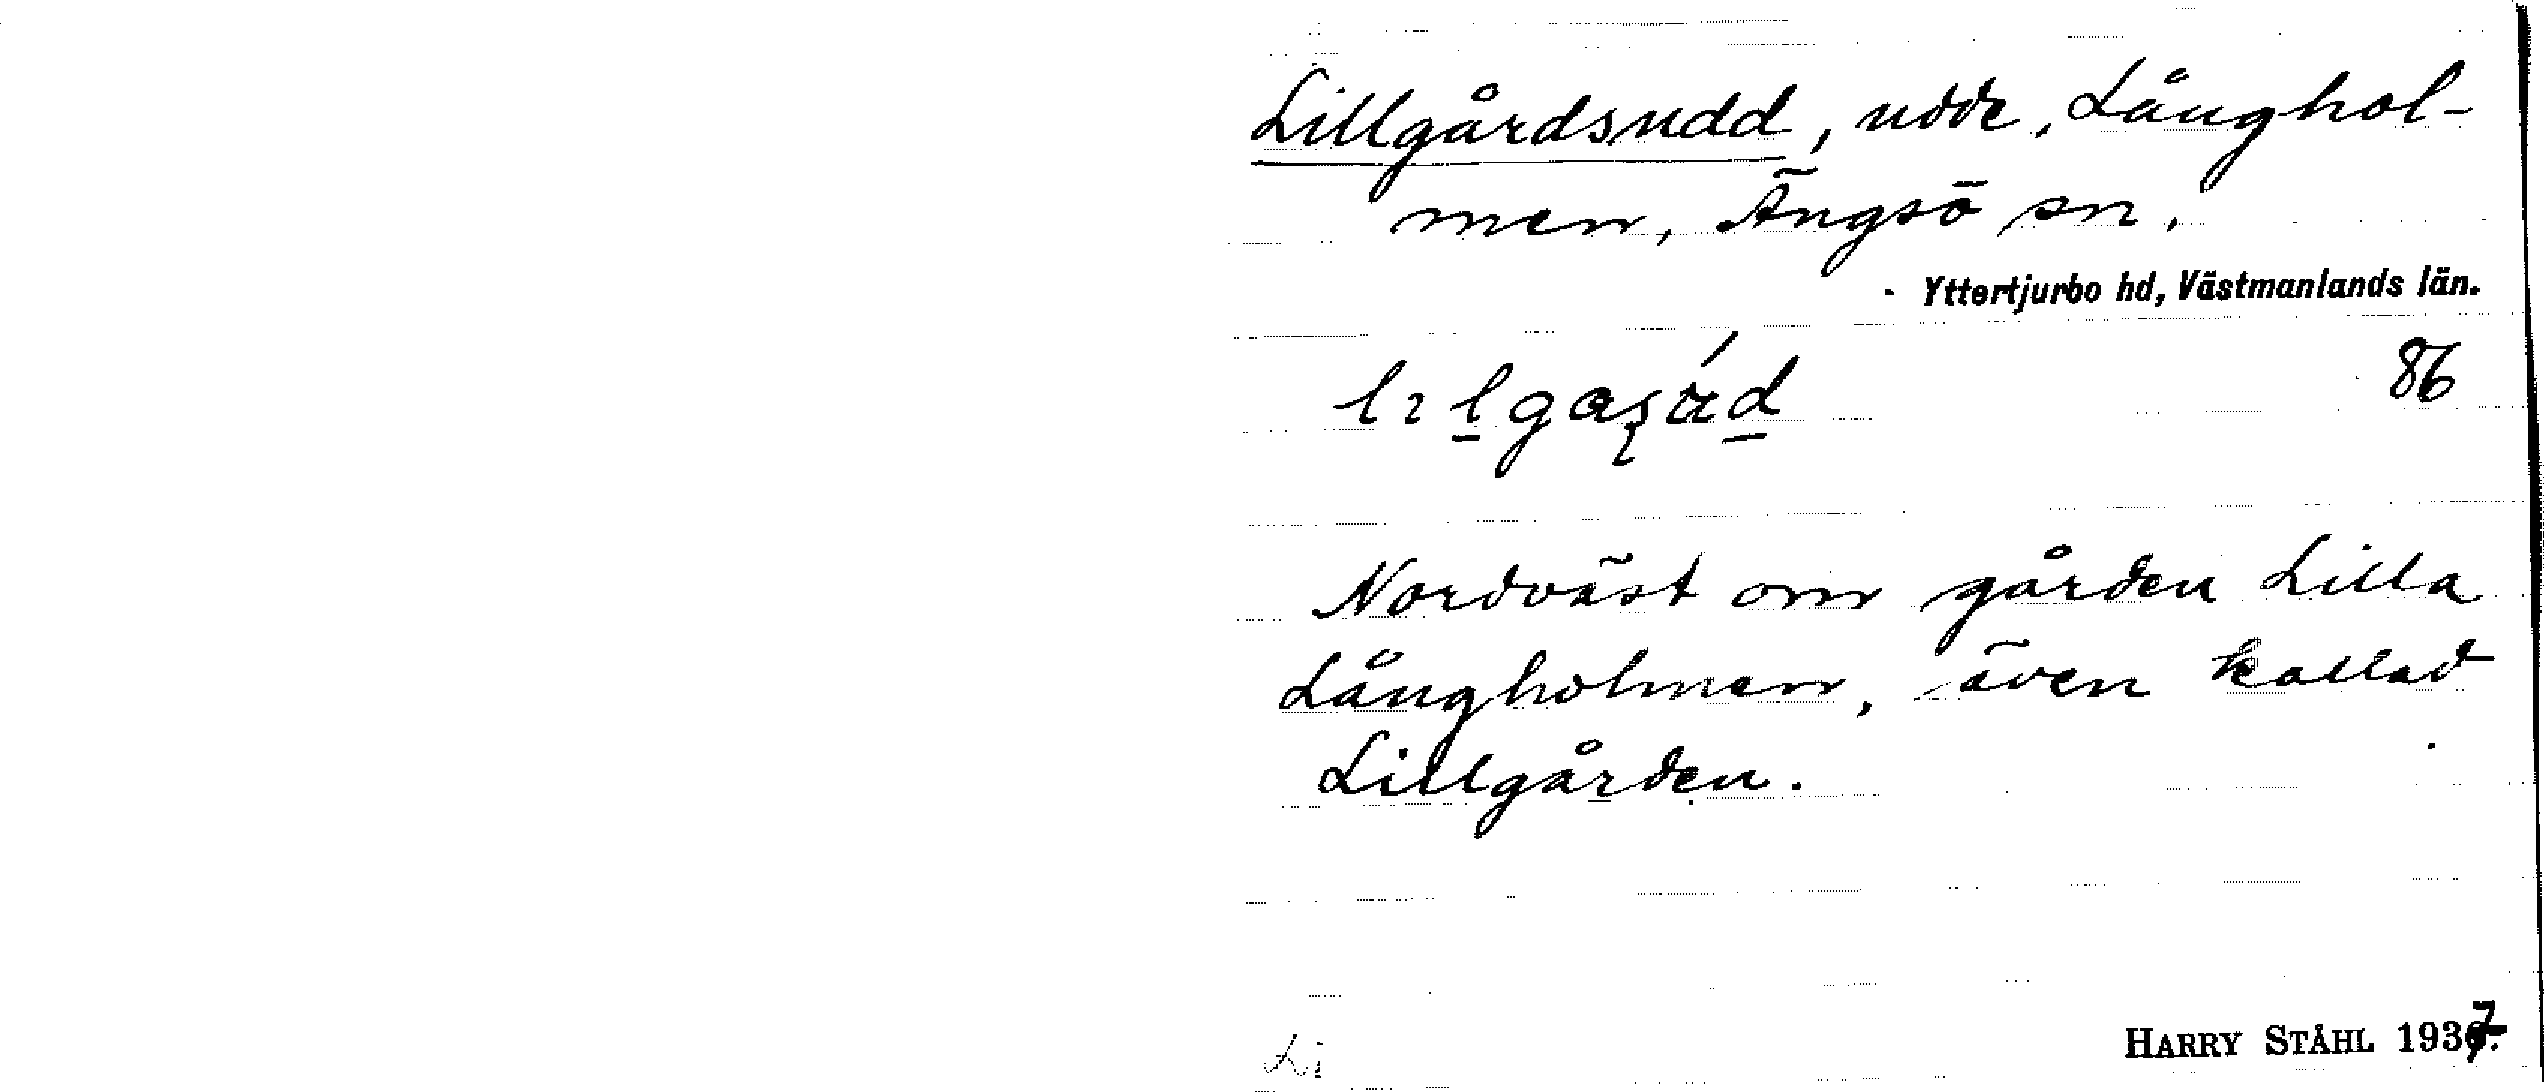 Lillgårdsudd, udde, Långhol-
men, Ängsö sn.
Yttertjurbo hd, Västmanlands län.
86
Nordväst om gården Lilla
Långholmen, även kallad
Lillgården.
Li
HARRY STÅHL 1937.